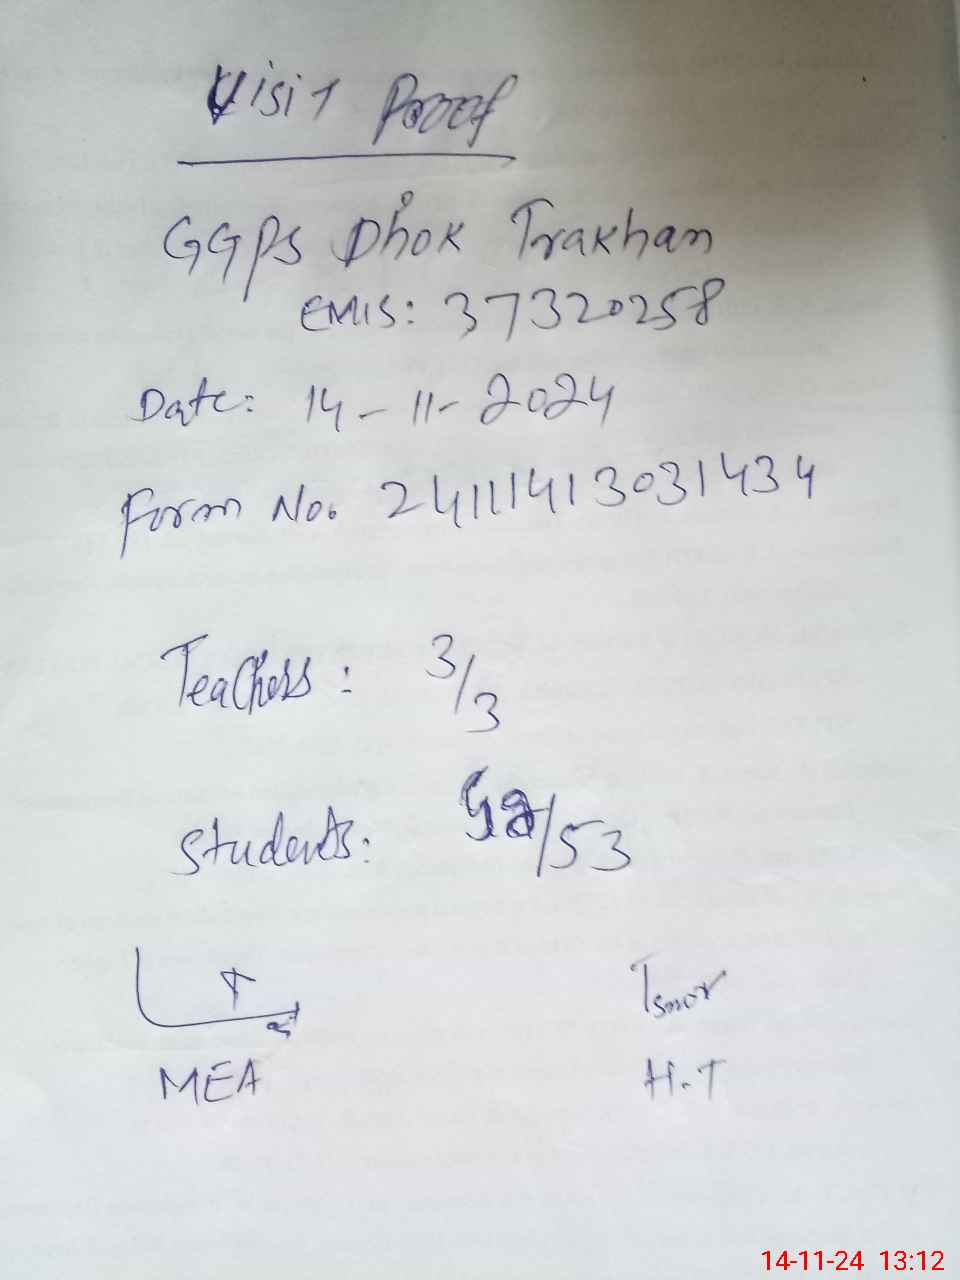 Visit Proof
GGPS Dhok Trakhan
EMIS: 37320258
Date: 14-11-2024
Form No. 24111413031434
Teachers: 3/3
Students: /53
MEA
H.T
14-11-24 13:12